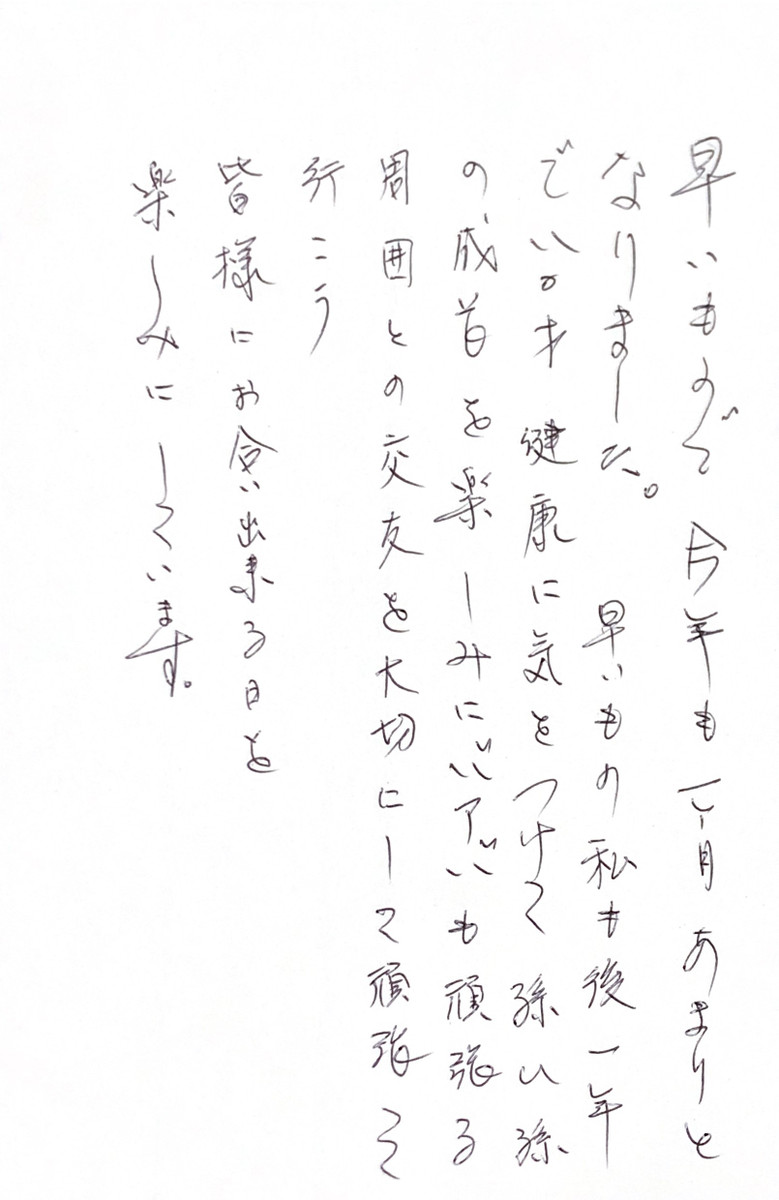 早いもので 今年も一ヶ月あまりと
なりました。 早いもの私も後一年
で八〇才 健康に気をつけて 孫ひ孫
の成長を楽しみにバアバも頑張る
周囲との交友を大切にして頑張って
行こう
皆様にお会い出来る日を
楽しみにしています。